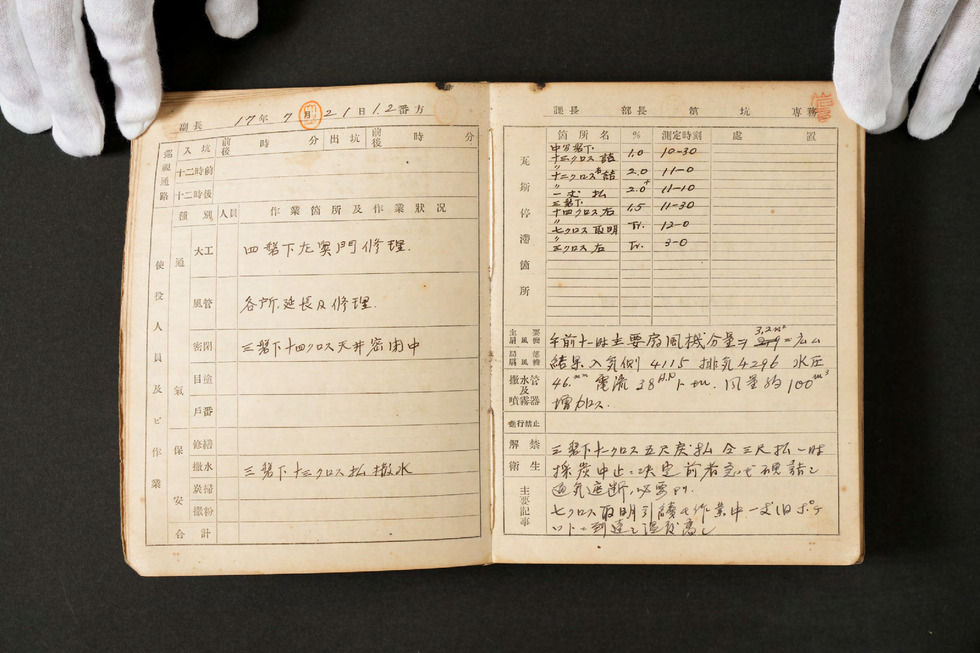 副長 17年7月21日1.2番方
巡視通路
入坑 前後 時 分 出坑 前後 時 分
十二時前
十二時後
使役人員及ビ作業
種別 人員 作業箇所及作業狀況
通氣
大工 四磐下左奧門修理.
風管 各所.延長及修理.
密閉 三磐下十四クロス天井密閉中
目塗
戶番
保安
修繕
撒水 三磐下十三クロス払撒水
炭掃
撒粉
合計
課長 部長 第 坑 專務
瓦斯停滯箇所
箇所名 % 測定時刻 處置
十三クロス詰 1.0 10-30
〃十二クロス 詰 2.0 11-0
〃一丈払 2.0+ 11-10
三磐下
十四クロス右 1.5 11-30
〃七クロス取明 Tr. 12-0
〃三クロス右 Tr. 3-0
主要扇風機 午前十一時主要扇風機
局部扇風機 結果入気側4115 排気4296 水圧
撒水管及噴霧器 46.mm 電流38 風量約100m3
增加ス.
發行禁止
解禁 三磐下十一クロス五尺戻払 仝三尺払一時
衛生 採炭中止ニ決定 前者 詰シ
主要記事 通気遮断ノ必要アリ.
七クロス取明引續キ作業中一丈旧ポケ
ットニ到達シ温度高シ